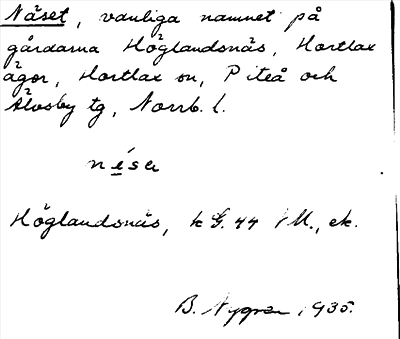 Näset, vanliga namnet på
gårdarna Höglandsnäs, Hortlax
ägor, Hortlax sn, Piteå och
Älvsby tg, Norrb. l.
nésa
Höglandsnäs, k G. 44 M., ek.
B. Nygren 1935.